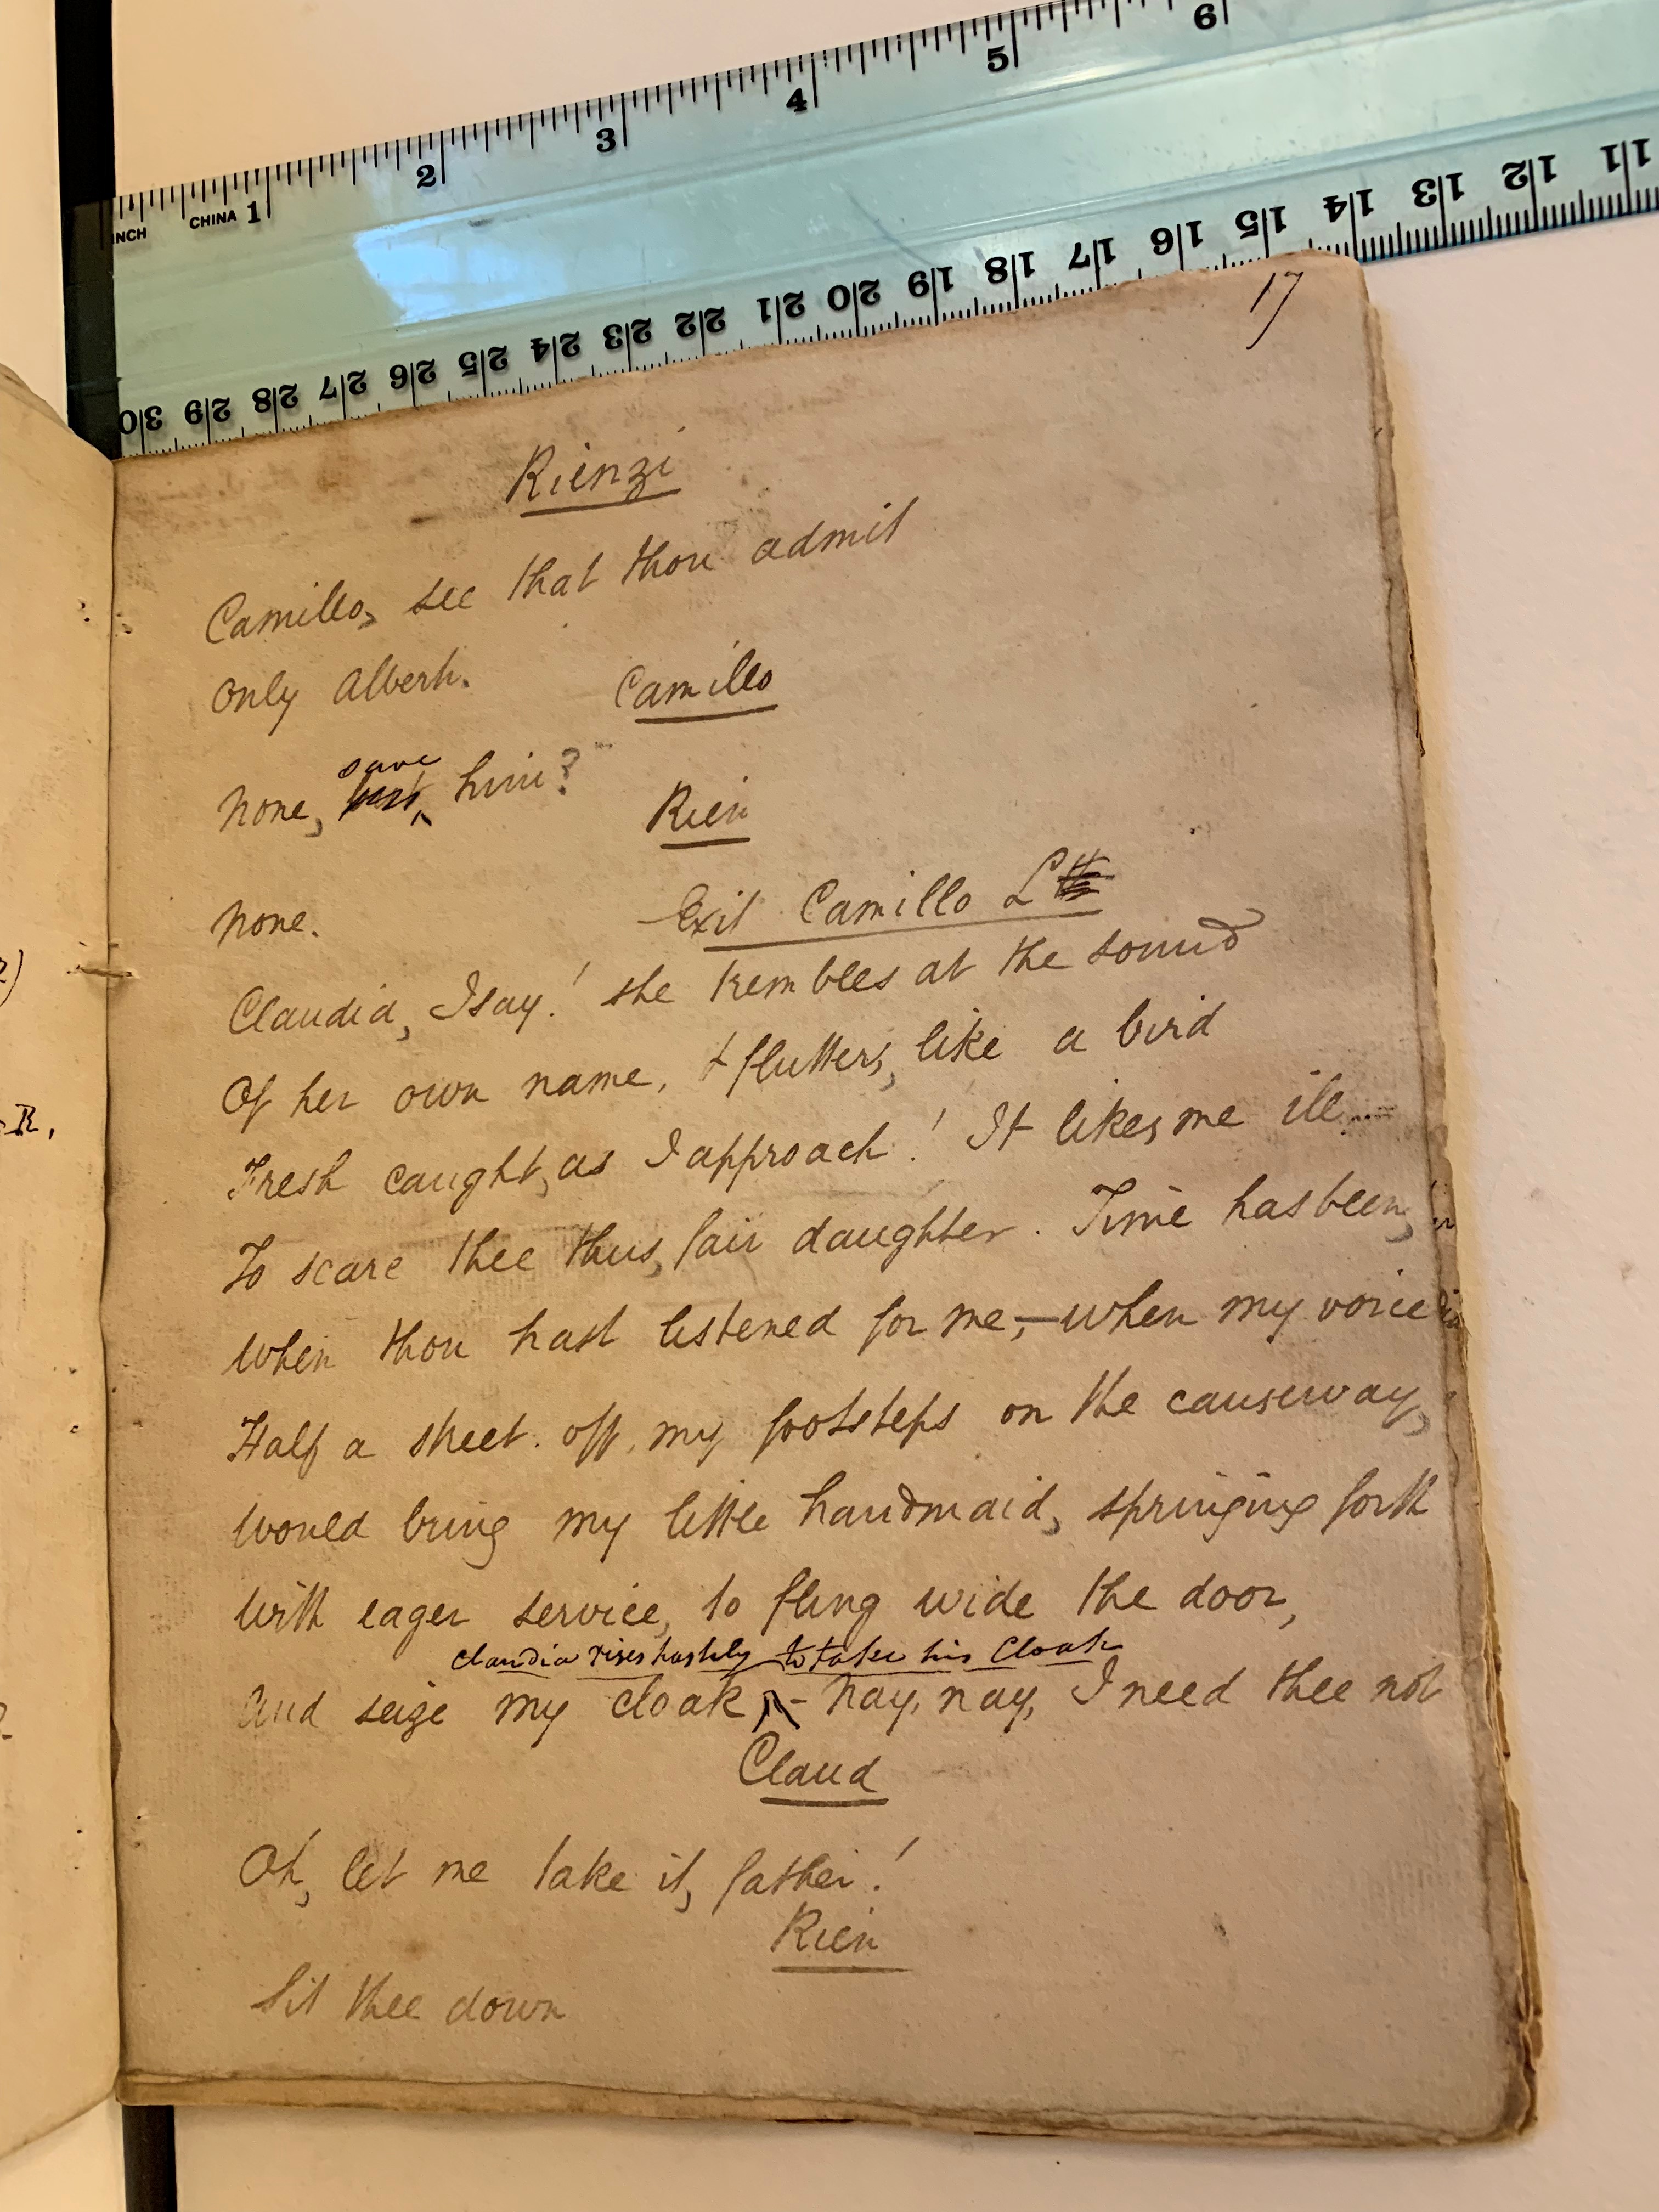 INCH CHINA 1 2 3 4 5 6
30 29 28 27 26 25 24 23 22 21 20 19 18 17 16 15 14 13 12 11
17
Rienzi
Camillo, see that thou admit
Only Alberti.
Camillo
None, save him?
Rien
None.
Exit Camillo L
Claudia, I say! she trembles at the sound
Of her own name, & flutters, like a bird
Fresh caught, as I approach! It likes me ill
To scare thee thus, fair daughter. Time has been,
When thou hast listened for me,—when my voice
Half a street off, my footsteps on the causeway,
Would bring my little handmaid, springing forth
With eager service, to fling wide the door,
Claudia rises hastily to take his Cloak
And seize my cloak, - Nay, nay, I need thee not
Claud
Oh, let me take it, father!
Rien
Sit thee down
R.